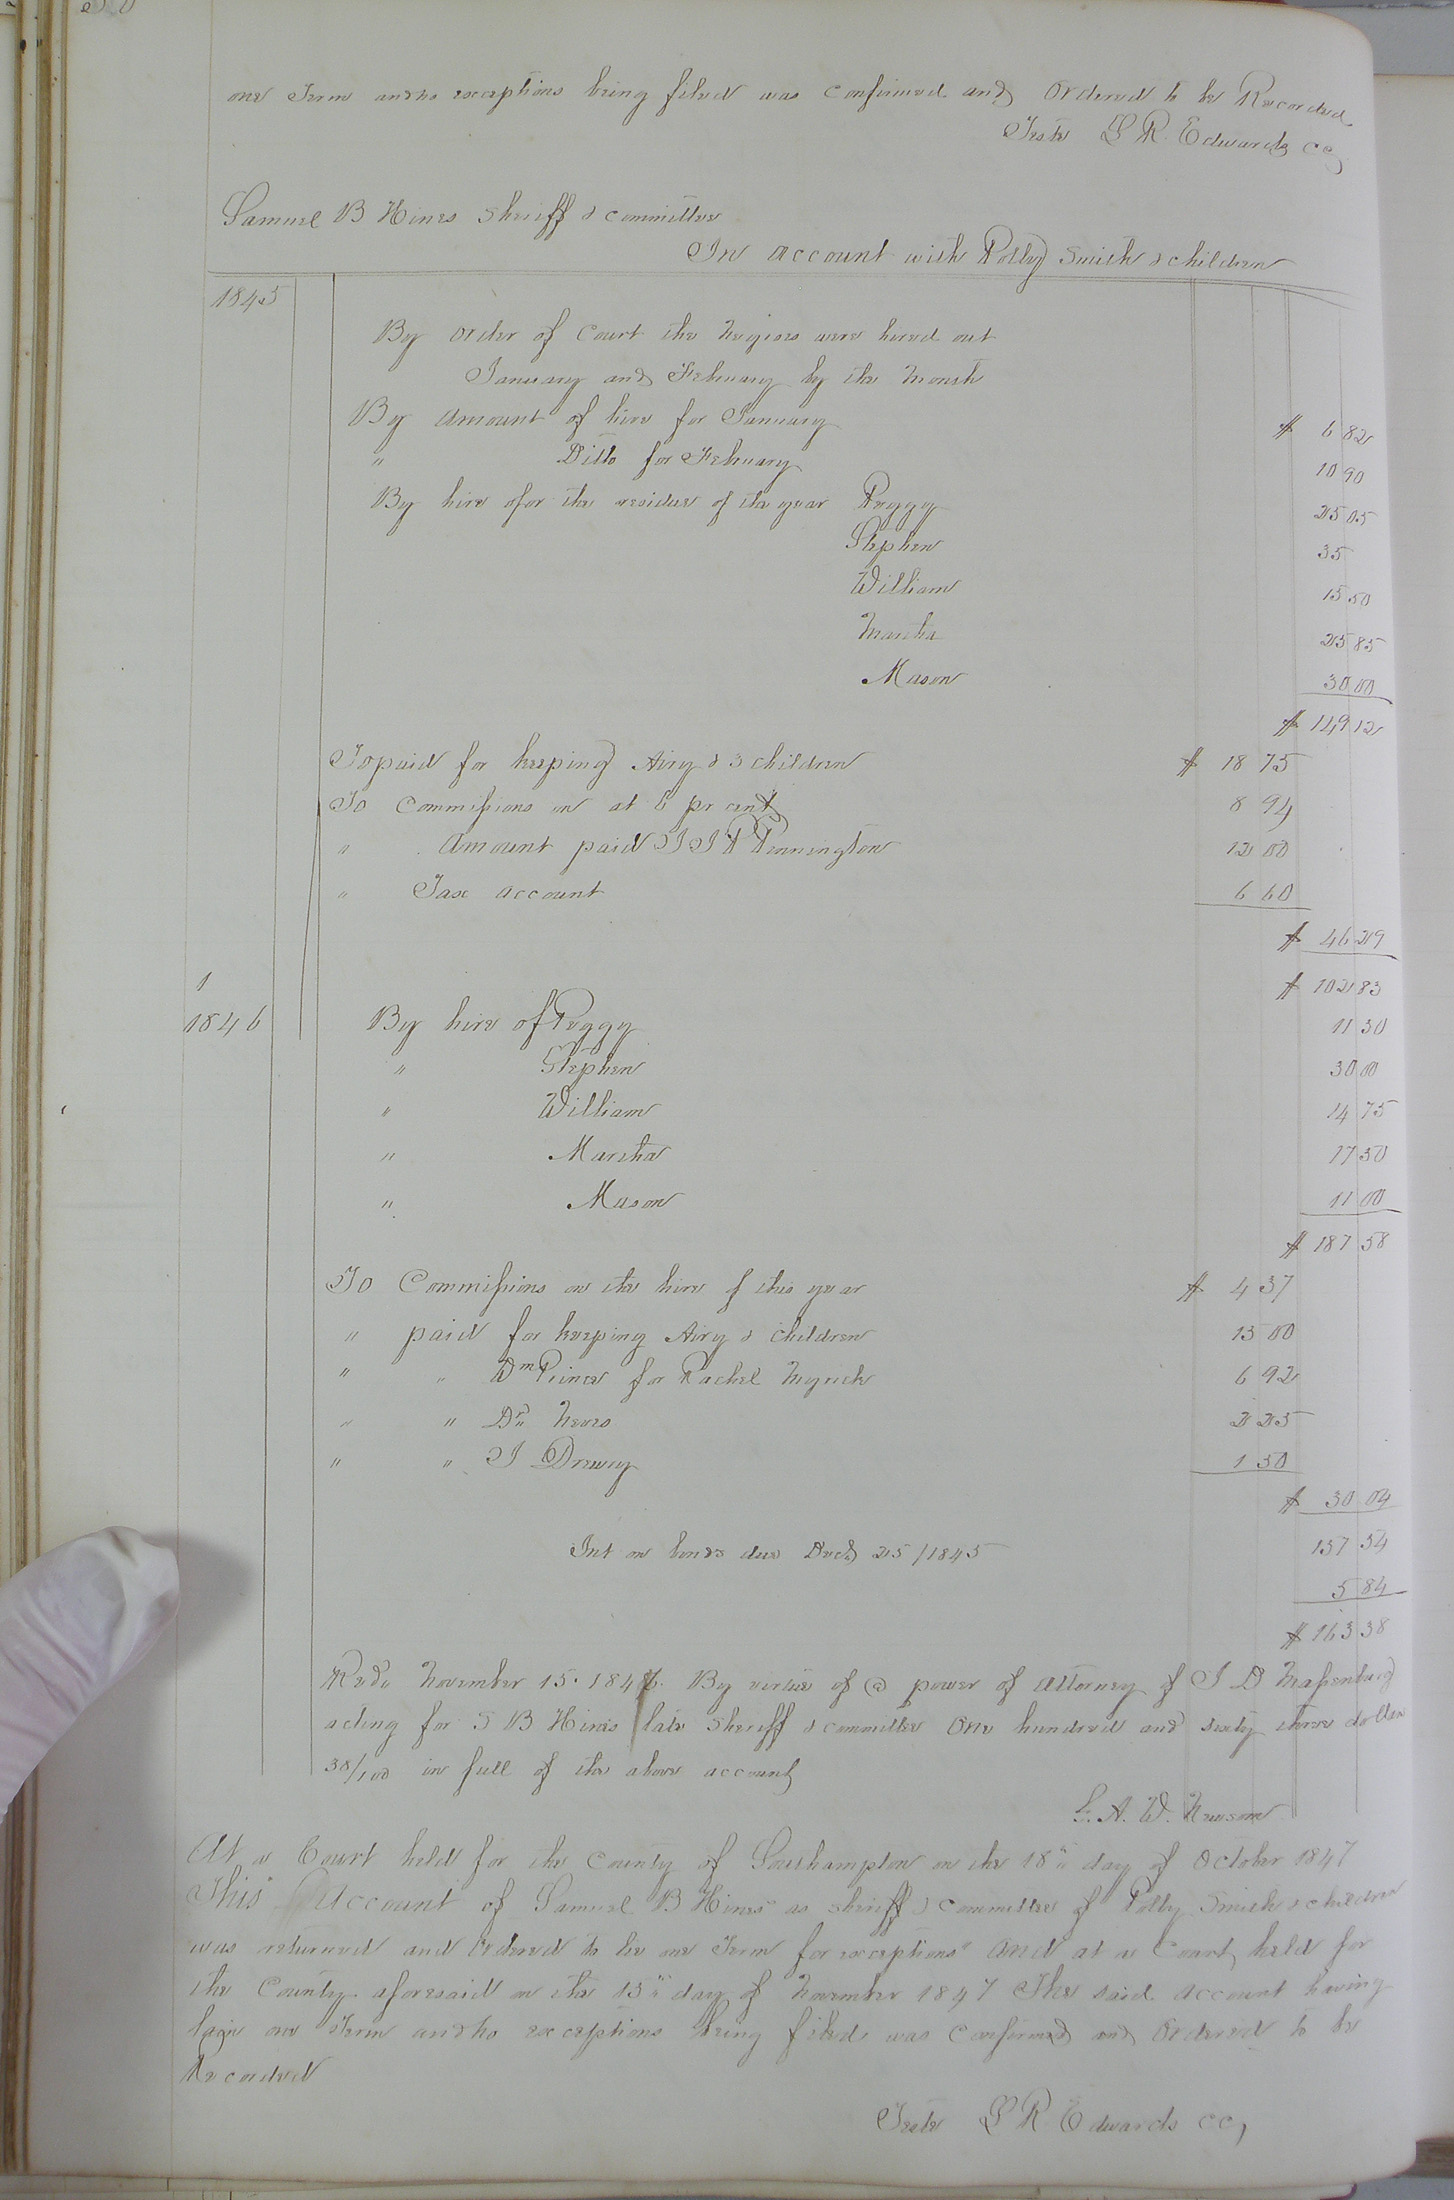 one Term and no exceptions being filed was Confirmed and Ordered to be Recorded
Teste L R Edwards CC
Samuel B Hines Sheriff & committee
In account with Polly Smith & children
1845
By order of Court the Negroes were hired out
January and February by the Month
By Amount of hire for January $ 6 82
" Ditto for February 10 90
By hire ofor the residue of the year Peggy 25 05
Stephen 35
William 15 50
Martha 25 85
Mason 30 00
$ 149 12
To paid for keeping Airy & 3 children $ 18 75
To Commissions on at 6 pr cent 8 94
" Amount paid J J P Pennington 12 00
" Tax account 6 60
$ 46 29
1 $ 102 83
1846 By hire of Peggy 11 30
" Stephen 30 00
" William 14 75
" Martha 17 50
" Mason 11 00
$ 187 58
To Commissions on the hire of this year $ 4 37
" paid for keeping Airy & children 15 00
" " Wm Prince for Rachel Myrick 6 92
" " Dr 2 25
" " J Drewry 1 50
$ 30 04
157 54
Int on bonds due Decr 25/1845
5 84
$ 163 38
Recd. November 15. 1847. By virtue of a power of Attorney of J D Massenburg
acting for S B Hines late Sheriff & committee One hundred and sixty three dollars
38/100 in full of the above account
G. A. W. Newsom
At a Court held for the County of Southampton on the 18th day of October 1847
This Account of Samuel B Hines as Sheriff & committee of Polly Smith & children
was returned and Ordered to lie one Term for exceptions" And at a Court held for
the County aforesaid on the 15th day of November 1847 The said account having
lain one Term and no exceptions being filed was Confirmed and Ordered to be
Recorded
Teste L R Edwards CC